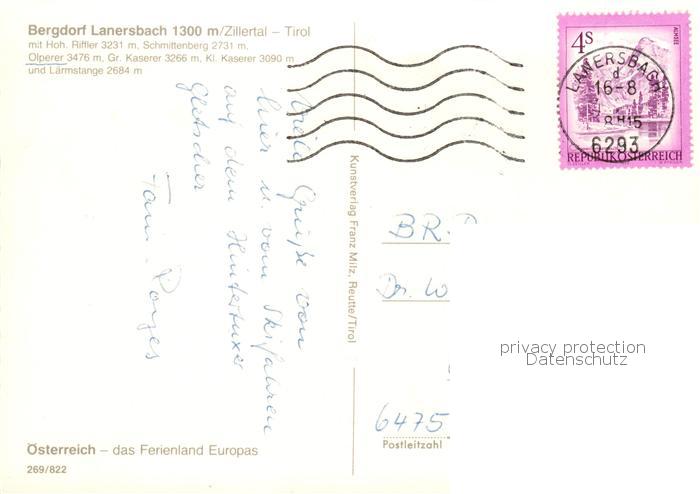 Bergdorf Lanersbach 1300 m/Zillertal – Tirol
mit Hoh. Riffler 3231 m, Schmittenberg 2731 m,
Olperer 3476 m, Gr. Kaserer 3266 m, Kl. Kaserer 3090 m
und Lärmstange 2684 m
Viele Grüße von
hier u. vom Skifahren
auf dem Hintertuxer
Gletscher
Fam. Porges
Kunstverlag Franz Milz, Reutte/Tirol
4S
ALMSEE
REPUBLIK ÖSTERREICH
LANERSBACH
d
16-8.
8H15
6293
BR.
Dr. W
privacy protection
Datenschutz
6475
Postleitzahl
Österreich – das Ferienland Europas
269/822